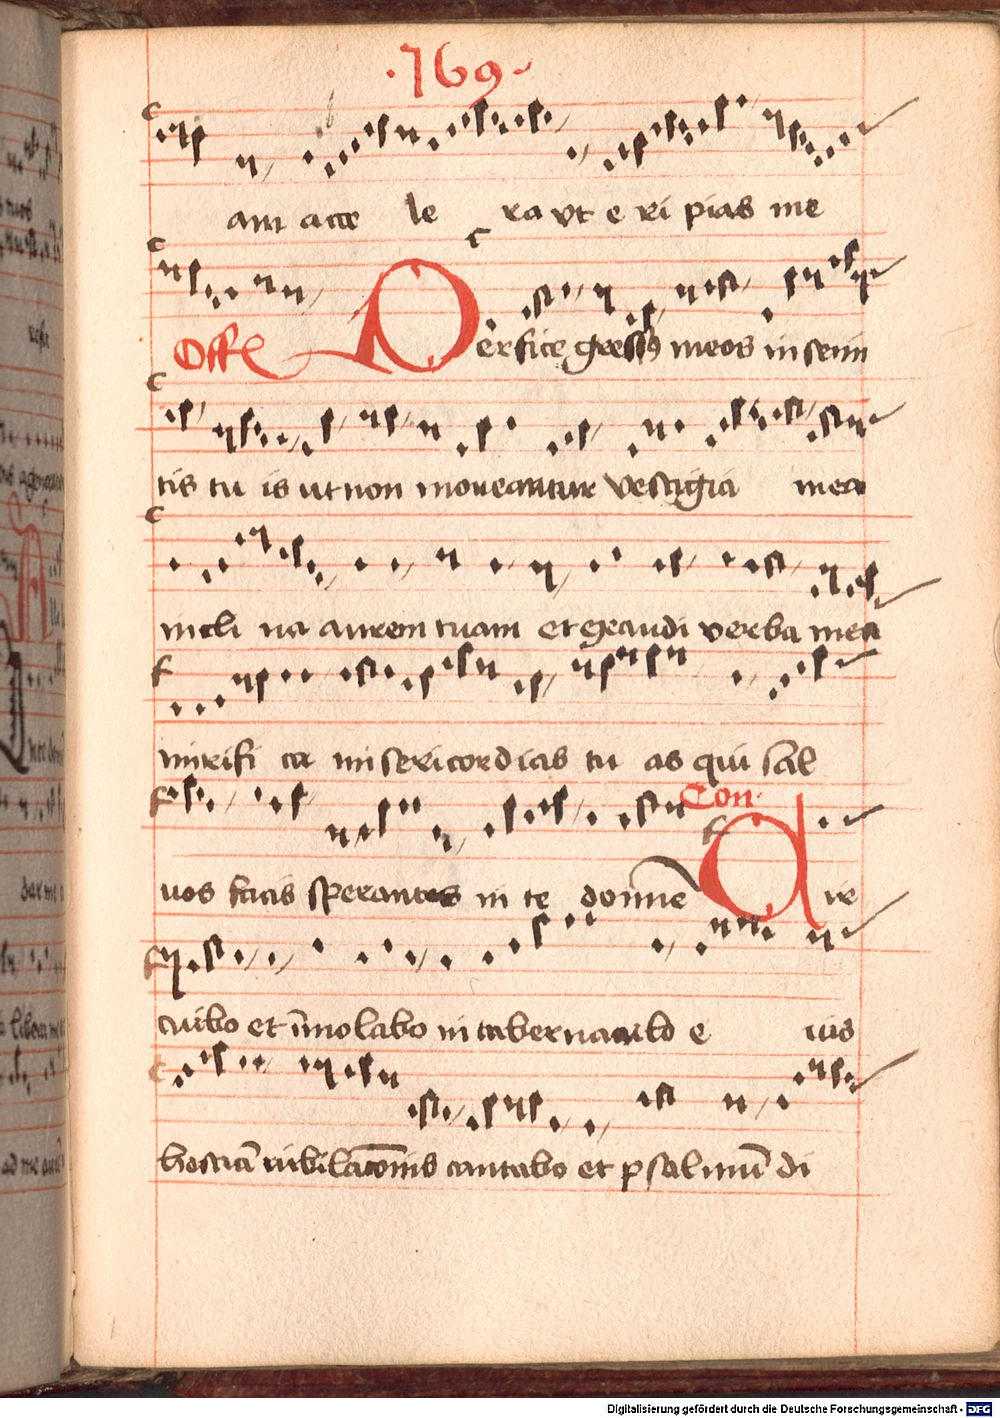 ·169·
am acce le ra vt e ri pias me
Offe Perfice gressus meos in semi
tis tu is ut non moueantur vestigia mea
incli na aurem tuam et exaudi verba mea
mirifi ca misericordias tu as qui sal
Con
uos facis sperantes in te domine Cir
cuibo et immolabo in tabernaculo e ius
hostiā iubilatōnis cantabo et psalmū di
Digitalisierung gefördert durch die Deutsche Forschungsgemeinschaft - DFG